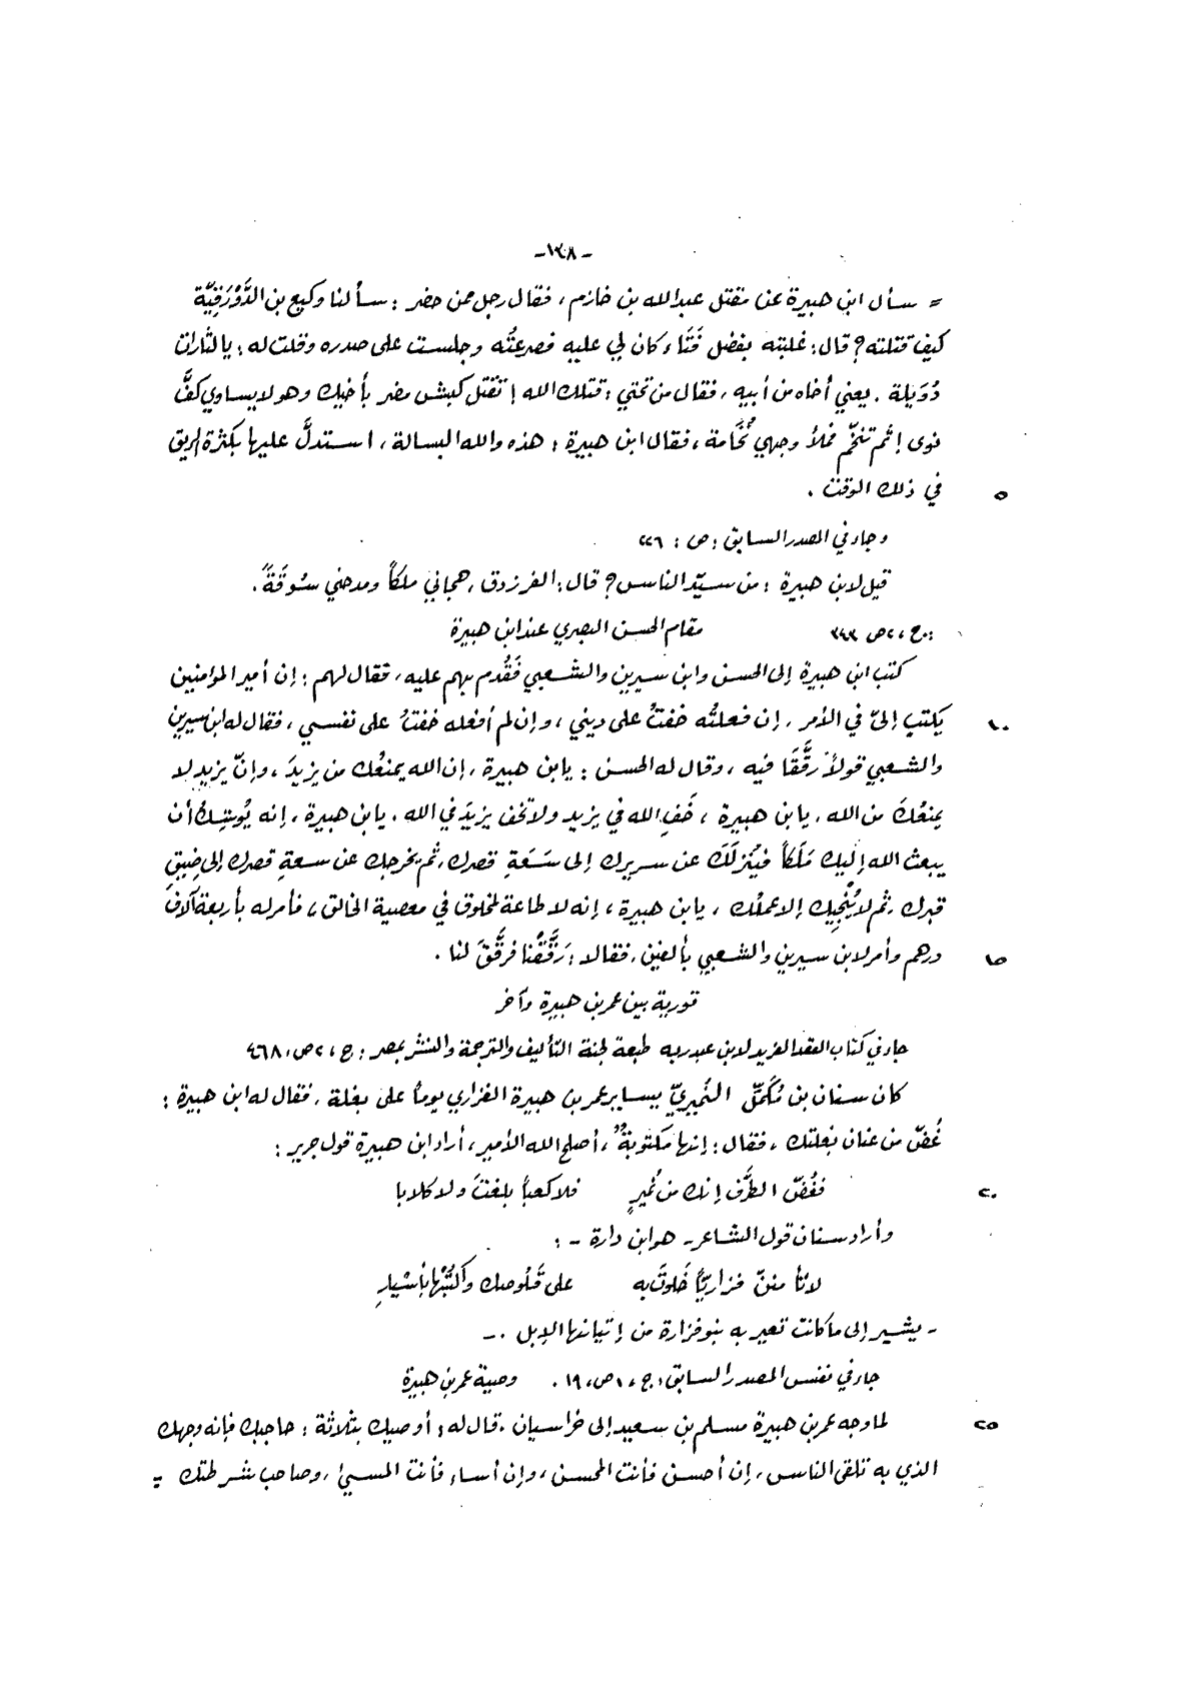 -١٣٨-
= سأل ابن هبيرة عن مقتل عبدالله بن خازم، فقال رجل ممن حضر: سألنا وكيع بن الدَّوْرَقِيّة
كيف قتلته؟ قال: غلبته بفضل فَتَاء كان لي عليه فصرعتُه وجلست على صدره وقلت له: يا لثارات
دُوَيلة. يعني أخاه من أبيه، فقال من تحتي: قتلك الله! تقتل كبش مضر بأخيك وهو لا يساوي كفَّ
نوى! ثم تنخّم فملأ وجهي نُخَامة، فقال ابن هبيرة: هذه والله البسالة، استدلَّ عليها بكثرة الريق
في ذلك الوقت. ٥
وجاء في المصدر السابق: ص: ٢٢٦
قيل لابن هبيرة: من سيّد الناس؟ قال: الفرزدق، هجاني ملكاً ومدحني سُوقَةً.
ج، ٢ ص ٣٤٣ مقام الحسن البصري عند ابن هبيرة
كتب ابن هبيرة إلى الحسن وابن سيرين والشعبي فَقُدم بهم عليه، فقال لهم: إن أمير المؤمنين
يكتب إليّ في الأمر، إن فعلتُه خفتُ على ديني، وإن لم أفعله خفتُ على نفسي، فقال له ابن سيرين ١٠
والشعبي قولاً رقَّقا فيه، وقال له الحسن: يا بن هبيرة، إن الله يمنعُك من يزيدَ، وإنّ يزيد لا
يمنعُكَ من الله. يا بن هبيرة، خَفِ الله في يزيد ولا تخف يزيدَ في الله. يا بن هبيرة، إنه يُوشك أن
يبعث الله إليك مَلَكاً فيُنزلَكَ عن سريرك إلى سَعَةِ قصرك، ثم يخرجك عن سعةِ قصرك إلى ضِيقِ
قبرك، ثم لا يُنْجِيك إلا عملُك، يا بن هبيرة، إنه لا طاعة لمخلوق في معصية الخالق، فأمر له بأربعة آلاف
درهم وأمر لابن سيرين والشعبي بألفين، فقالا: رَقَّقْنا فرقَّقَ لنا. ١٥
تورية بين عمر بن هبيرة وآخر
جاء في كتاب العقد الفريد لابن عبد ربه طبعة لجنة التأليف والترجمة والنشر بمصر: ج، ٢ ص، ٤٦٨
كان سنان بن مُكَمّل النُميريّ يساير عمر بن هبيرة الفزاري يوماً على بغلة، فقال له ابن هبيرة:
غُضّ من عنان بغلتك، فقال: إنها مكتوبةٌ، أصلح الله الأمير، أراد ابن هبيرة قول جرير:
فغُضّ الطَّرْف إنك من نُميرٍ فلا كعباً بلغتَ ولا كلابا ٢٠
وأراد سنان قول الشاعر ـ هو ابن دارة ـ:
لا تأمننّ فزاريًّا خَلوتَ به على قَلُوصك واكتُبْها بأسْيارِ
ـ يشير إلى ما كانت تعير به بنو فزارة من إتيانها الإبل. ـ
جاء في نفس المصدر السابق: ج، ١ ص، ١٩. وصية عمر بن هبيرة
لما وجه عمر بن هبيرة مسلم بن سعيد إلى خراسان، قال له: أوصيك بثلاثة: حاجبك فإنه وجهك ٢٥
الذي به تلقى الناس، إن أحسن فأنت المحسن، وإن أساء فأنت المسيئ، وصاحب شرطتك =